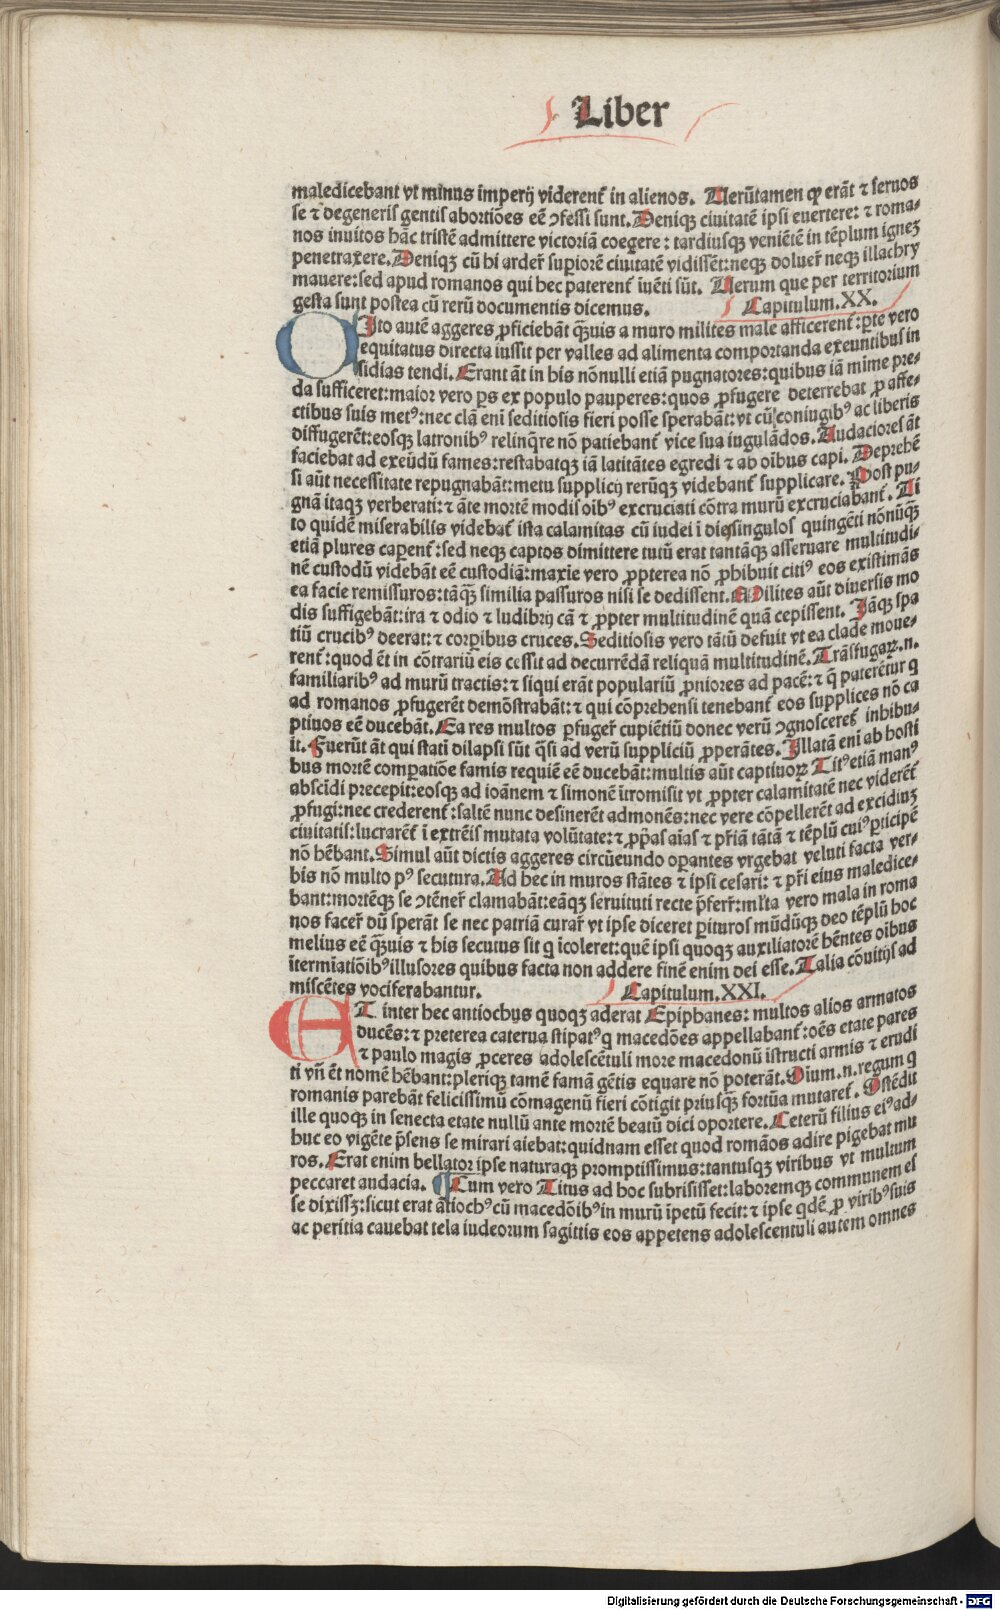 Liber
maledicebant vt minus imperij viderent᷑ in alienos. Uerūtamen ꝙ erāt ⁊ seruos
se ⁊ degeneris gentis abortiões eē ↄfessi sunt. Deniqꝫ ciuitatē ipsi euertere: ⁊ roma⸗
nos inuitos hāc tristē admittere victoriā coegere: tardiusqꝫ veniētē in tēplum ignez
penetraxere. Deniqꝫ cū hi arder᷑ supiorē ciuitatē vidissēt: neqꝫ doluer᷑ neqꝫ illachry
mauere: sed apud romanos qui hec paterent᷑ iuēti sūt. Uerum que per territorium
gesta sunt postea cū rerū documentis dicemus. Capitulum. XX.
Ito autē aggeres ꝓficiebāt q̄ȝuis a muro milites male afficerent᷑: ꝑte vero
equitatus directa iussit per valles ad alimenta comportanda exeuntibus in
sidias tendi. Erant āt in his nōnulli etiā pugnatores: quibus iā mime pre⸗
da sufficeret: maior vero ꝑs ex populo pauperes: quos ꝓfugere deterrebat ꝓ affe⸗
ctibus suis metꝰ: nec clā eni seditiosis fieri posse sperabāt: vt cū coniugibꝰ ac liberis
diffugerēt: eosqꝫ latronibꝰ relinq̄re nō patiebant᷑ vice sua iugulādos. Audaciores āt
faciebat ad exeūdū fames: restabatqꝫ iā latitātes egredi ⁊ ab oībus capi. Deprehē
si aūt necessitate repugnabāt: metu supplicij rerūqꝫ videbant᷑ supplicare. Post pu⸗
gnā itaqꝫ verberati: ⁊ āte mortē modis oībꝰ excruciati cōtra murū excruciabant᷑. Ti
to quidē miserabilis videbat᷑ ista calamitas cū iudei i dies singulos quingēti nōnūq̄ȝ
etiā plures caperent᷑: sed neqꝫ captos dimittere tutū erat tantāqꝫ asseruare multitudi⸗
nē custodū videbāt eē custodiā: maxie vero ꝓpterea nō ꝓhibuit citiꝰ eos existimās
ea facie remissuros: tāq̄ȝ similia passuros nisi se dedissent. Milites aūt diuersis mo
dis suffigebāt: ira ⁊ odio ⁊ ludibrij cā ⁊ ꝓpter multitudinē quā cepissent. Jāqꝫ spa
tiū crucibꝰ deerat: ⁊ corꝑibus cruces. Seditiosis vero tātū defuit vt ea clade moue⸗
rent᷑: quod ēt in cōtrariū eis cessit ad decurrēdā reliquā multitudinē. Trāsfugaꝝ. n.
familiaribꝰ ad murū tractis: ⁊ siqui erāt populariū ꝓniores ad pacē: ⁊ q̄ paterētur q
ad romanos ꝓfugerēt demōstrabāt: ⁊ qui cōprehensi tenebant᷑ eos supplices nō ca
ptiuos eē ducebāt. Ea res multos ꝑfuger᷑ cupiētiū donec verū ↄgnosceret᷑ inhibu⸗
it. Fuerūt āt qui stati dilapsi sūt q̄si ad verū suppliciū ꝓperātes. Illatā eni ab hosti
bus mortē comꝑatiōe famis requiē eē ducebāt: multis aūt captiuoꝝ Titꝰ etiā manꝰ
abscīdi precepit: eosqꝫ ad ioānem ⁊ simonē ītromisit vt ꝓpter calamitatē nec viderēt᷑
ꝓfugi: nec crederent᷑: saltē nunc desinerēt admonēs: nec vere cōpellerēt ad excidiuȝ
ciuitatis: lucrarēt᷑ ī extrēis mutata volūtate: ⁊ ꝓp̄as aīas ⁊ pr̄iā tātā ⁊ tēplū cuiꝰ ꝑticipē
nō hēbant. Simul aūt dictis aggeres circūeundo oꝑantes vrgebat veluti facta ver⸗
bis nō multo pꝰ secutura. Ad hec in muros stātes ⁊ ipsi cesari: ⁊ pr̄i eius maledice⸗
bant: mortēqꝫ se ↄtēner᷑ clamabāt: eāqꝫ seruituti recte p̄ferr᷑: ml̄ta vero mala in roma
nos facer᷑ dū sperāt se nec patriā curar᷑ vt ipse diceret ꝑituros mūdūqꝫ deo tēplū hoc
melius eē q̄ȝuis ⁊ his secutus sit q īcoleret: quē ipsi quoqꝫ auxiliatorē hēntes oībus
ītermīatiōibꝰ illusores quibus facta non addere finē enim dei esse. Talia cōuitijs ad
miscētes vociferabantur. Capitulum. XXI.
ET inter hec antiochus quoqꝫ aderat Epiphanes: multos alios armatos
ducēs: ⁊ preterea caterua stipatꝰ q macedōes appellabant᷑: oēs etate pares
⁊ paulo magis ꝓceres adolescētuli more macedonū īstructi armis ⁊ erudi
ti vn̄ ēt nomē hēbant: pleriqꝫ tamē famā gētis equare nō poterāt. Oium. n. regum q
romanis parebāt felicissimū cōmagenū fieri cōtigit priusq̄ȝ fortūa mutaret᷑. Ostēdit
ille quoqꝫ in senecta etate nullū ante mortē beatū dici oportere. Ceterū filius eiꝰ ad⸗
huc eo vigēte p̄sens se mirari aiebat: quidnam esset quod romāos adire pigebat mu
ros. Erat enim bellator ipse naturaqꝫ promptissimus: tantusqꝫ viribus vt multum
peccaret audacia. ¶ Cum vero Titus ad hoc subrisisset: laboremqꝫ communem es
se dixissꝫ: sicut erat ātiochꝰ cū macedōibꝰ in murū īpetū fecit: ⁊ ipse qdē ꝓ viribꝰ suis
ac peritia cauebat tela iudeorum sagittis eos appetens adolescentuli autem omnes
Digitalisierung gefördert durch die Deutsche Forschungsgemeinschaft - DFG